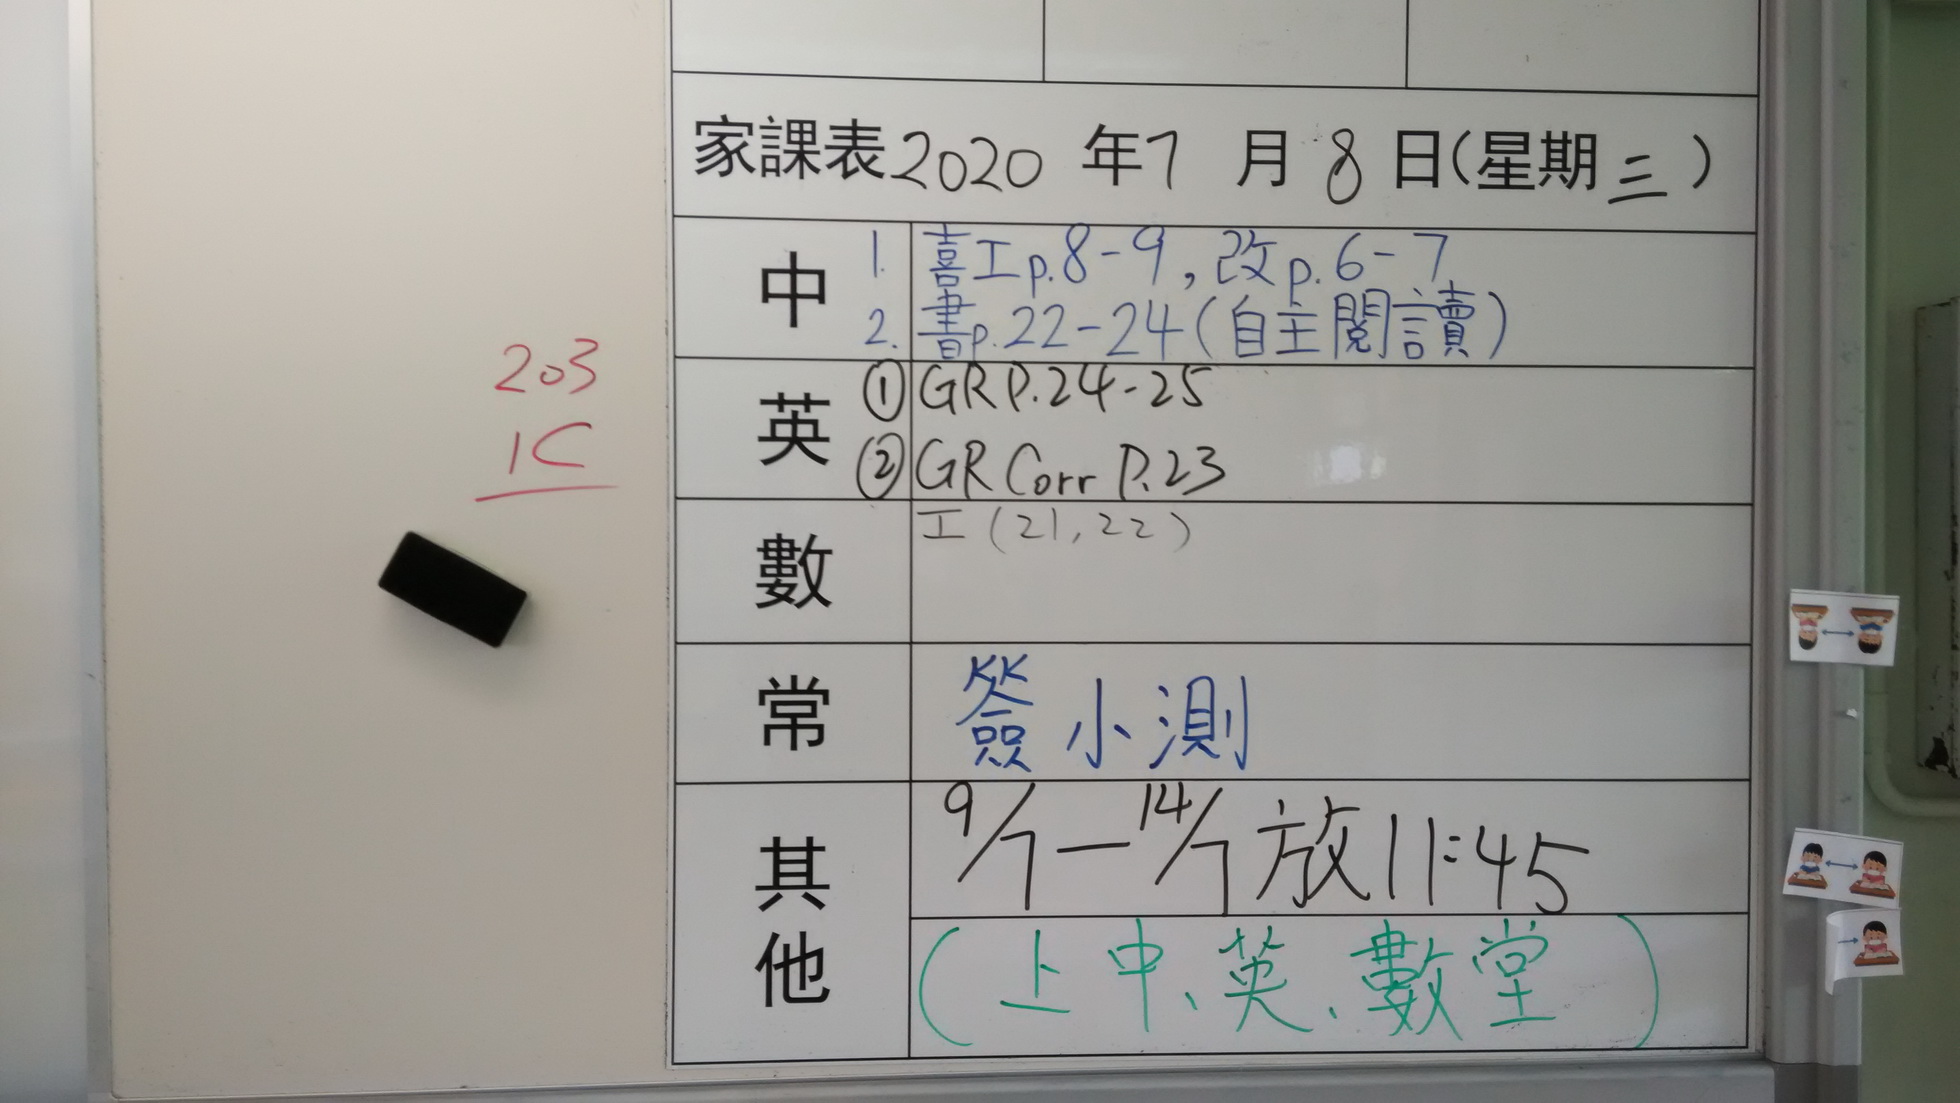 家課表2020 年7 月 8 日(星期三)
中
1. 喜工p.8-9, 改p.6-7
2. 書p.22-24(自主閱讀)
英
① GR P.24-25
② GR Corr P.23
數
工(21,22)
常
簽小測
其他
9/7—14/7放11:45
(上中、英、數堂)
203
1C